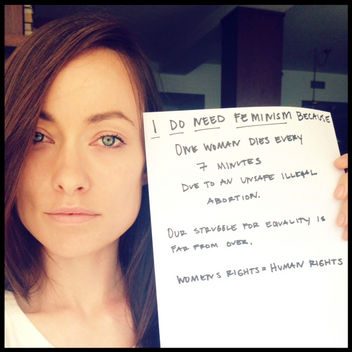 I DO NEED FEMINISM BECAUSE
ONE WOMAN DIES EVERY
7 MINUTES
DUE TO AN UNSAFE ILLEGAL
ABORTION.
OUR STRUGGLE FOR EQUALITY IS
FAR FROM OVER.
WOMEN'S RIGHTS = HUMAN RIGHTS